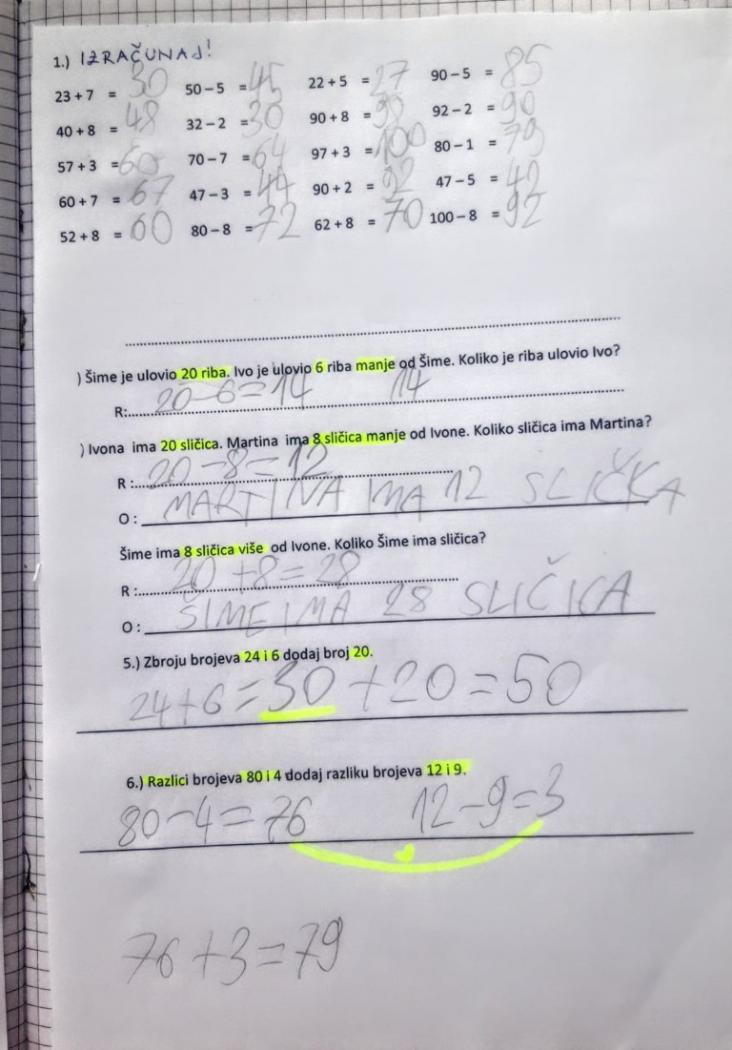 1.) IZRAČUNAJ!
23 + 7 = 30 50 – 5 = 45 22 + 5 = 27 90 – 5 = 85
40 + 8 = 48 32 – 2 = 30 90 + 8 = 98 92 – 2 = 90
57 + 3 = 60 70 – 7 = 64 97 + 3 = 100 80 – 1 = 79
60 + 7 = 67 47 – 3 = 44 90 + 2 = 92 47 – 5 = 42
52 + 8 = 60 80 – 8 = 72 62 + 8 = 70 100 – 8 = 92
) Šime je ulovio 20 riba. Ivo je ulovio 6 riba manje od Šime. Koliko je riba ulovio Ivo?
R: 20 – 6 = 14 14
) Ivona ima 20 sličica. Martina ima 8 sličica manje od Ivone. Koliko sličica ima Martina?
R : 20 – 8 = 12
O : MARTINA IMA 12 SLIČKA
Šime ima 8 sličica više od Ivone. Koliko Šime ima sličica?
R : 20 + 8 = 28
O : ŠIME IMA 28 SLIČICA
5.) Zbroju brojeva 24 i 6 dodaj broj 20.
24 + 6 = 30 + 20 = 50
6.) Razlici brojeva 80 i 4 dodaj razliku brojeva 12 i 9.
80 – 4 = 76 12 – 9 = 3
76 + 3 = 79